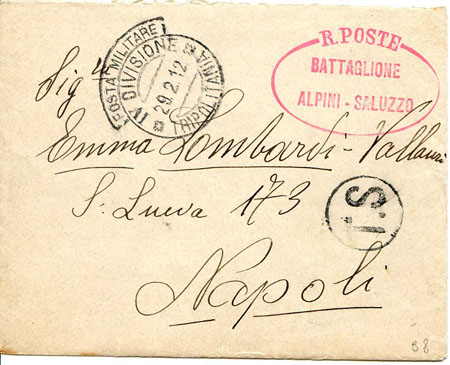 POSTA MILITARE
IV DIVISIONE
29.2.12
TRIPOLITANIA
R. POSTE
BATTAGLIONE
ALPINI - SALUZZO
Sig.ra
Emma Lombardi - Vallauri
S. Lucia 173
T.S
Napoli
38